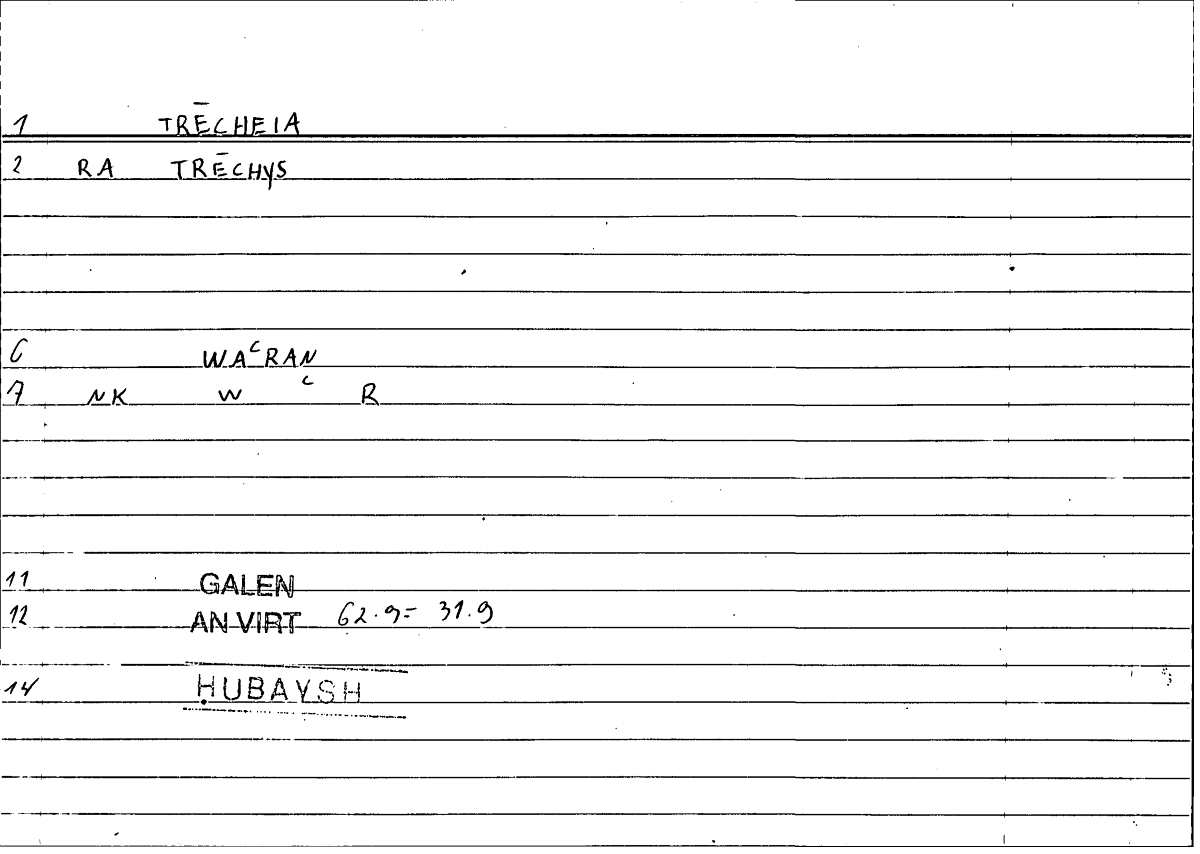 1 TRĒCHEIA
2 RA TRĒCHYS
6 WAʿRAN
7 NK W ʿ R
11 GALEN
12 AN VIRT 62.9= 31.9
14 ḤUBAYSH